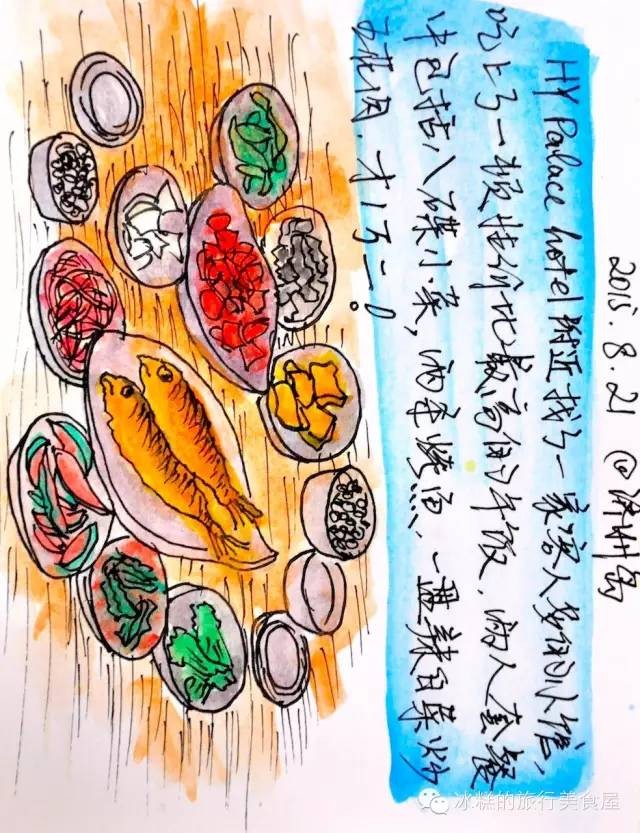 2015.8.21 @济州岛
HY Palace hotel附近找了一家客人多的小馆，
吃上了一顿性价比最高的午饭，两人套餐
中包括八碟小菜，两条烤鱼，一盘辣白菜炒
五花肉，才1万二。
冰糕的旅行美食屋